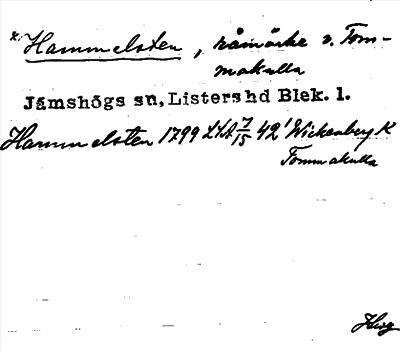 x. Hammelsten, råmärke v. Tom-
makulla
Jämshögs sn, Listers hd Blek. l.
Hammelsten 1799 LSA 7/15 42' Wickenberg K
Tommakulla